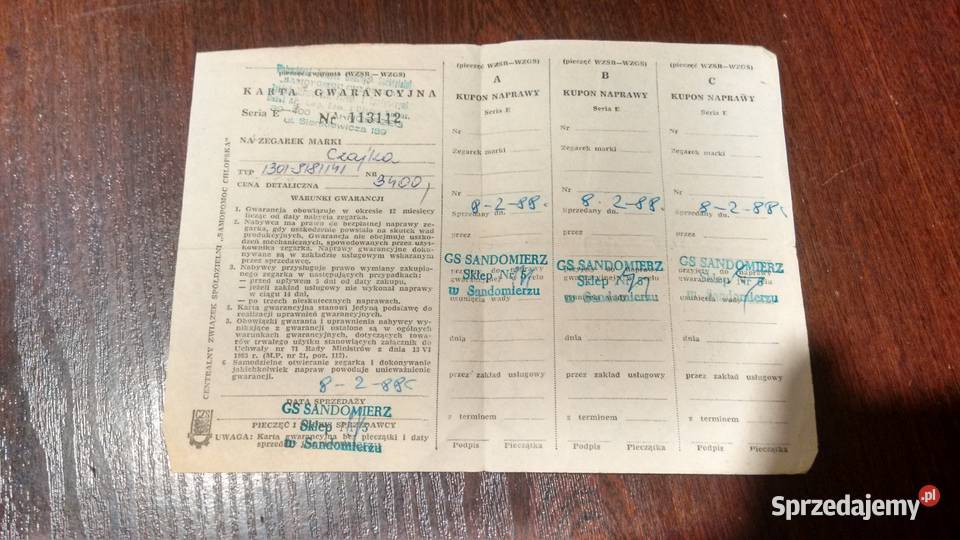 pieczęć gwaranta (WZSR—WZGS)
KARTA GWARANCYJNA
Seria E Nr 113112
ul. Sienkiewicza 180
NA ZEGAREK MARKI
Czajka
TYP 1301 NR
CENA DETALICZNA 3400,
WARUNKI GWARANCJI
1. Gwarancja obowiązuje w okresie 12 miesięcy
licząc od daty nabycia zegarka.
2. Nabywca ma prawo do bezpłatnej naprawy ze-
garka, gdy uszkodzenie powstało na skutek wad
produkcyjnych. Gwarancja nie obejmuje uszko-
dzeń mechanicznych, spowodowanych przez użyt-
kownika zegarka. Naprawy gwarancyjne doko-
nywane są w zakładzie usługowym wskazanym
przez sprzedawcę.
3. Nabywcy przysługuje prawo wymiany zakupio-
nego zegarka w następujących przypadkach:
— przed upływem 5 dni od daty zakupu,
— jeżeli zakład usługowy nie wykonał naprawy
w ciągu 14 dni,
— po trzech nieskutecznych naprawach.
4. Karta gwarancyjna stanowi jedyną podstawę do
realizacji uprawnień gwarancyjnych.
5. Obowiązki gwaranta i uprawnienia nabywcy wy-
nikające z gwarancji ustalone są w ogólnych
warunkach gwarancyjnych, dotyczących towa-
rów trwałego użytku stanowiących załącznik do
Uchwały nr 71 Rady Ministrów z dnia 13 VI
1983 r. (M.P. nr 21, poz. 112).
6. Samodzielne otwieranie zegarka i dokonywanie
jakichkolwiek napraw powoduje unieważnienie
gwarancji.
8-2-88
DATA SPRZEDAŻY
GS SANDOMIERZ
Sklep Nr
w Sandomierzu
PIECZĘĆ I PODPIS SPRZEDAWCY
UWAGA: Karta gwarancyjna bez pieczątki i daty
CENTRALNY ZWIĄZEK SPÓŁDZIELNI „SAMOPOMOC CHŁOPSKA"
CZS
(pieczęć WZSR—WZGS)
A
KUPON NAPRAWY
Seria E
Nr
Zegarek marki
Nr
8-2-88
Sprzedany dn.
przez
GS SANDOMIERZ
Sklep Nr
w Sandomierzu
usunięcia wady
dnia
przez zakład usługowy
z terminem
Podpis Pieczątka
(pieczęć WZSR—WZGS)
B
KUPON NAPRAWY
Seria E
Nr
Zegarek marki
Nr
8-2-88
Sprzedany dn.
przez
GS SANDOMIERZ
Sklep Nr
w Sandomierzu
dnia
przez zakład usługowy
z terminem
Podpis Pieczątka
(pieczęć WZSR—WZGS)
C
KUPON NAPRAWY
Seria E
Nr
Zegarek marki
Nr
8-2-88
Sprzedany dn.
przez
GS SANDOMIERZ
Sklep Nr
w Sandomierzu
usunięcia wady
dnia
przez zakład usługowy
z terminem
Podpis Pieczątka
Sprzedajemy.pl